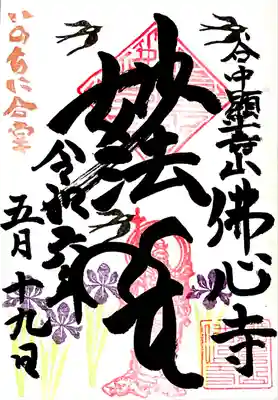 谷中顕寿山佛心寺
妙法
令和六年
五月十九日
いのちに合掌